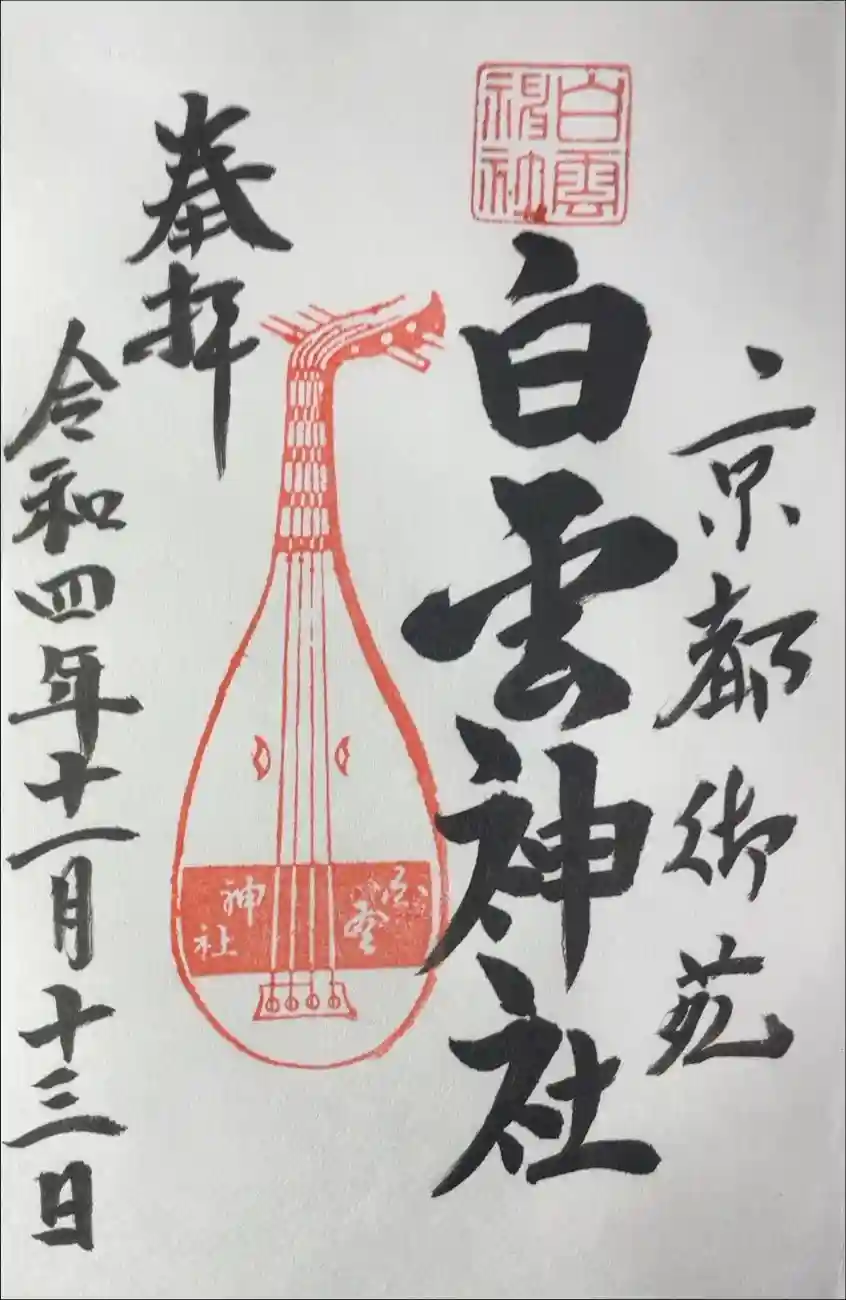 京都御苑
白雲神社
白雲神社
白雲
神社
奉拝
令和四年十一月十三日